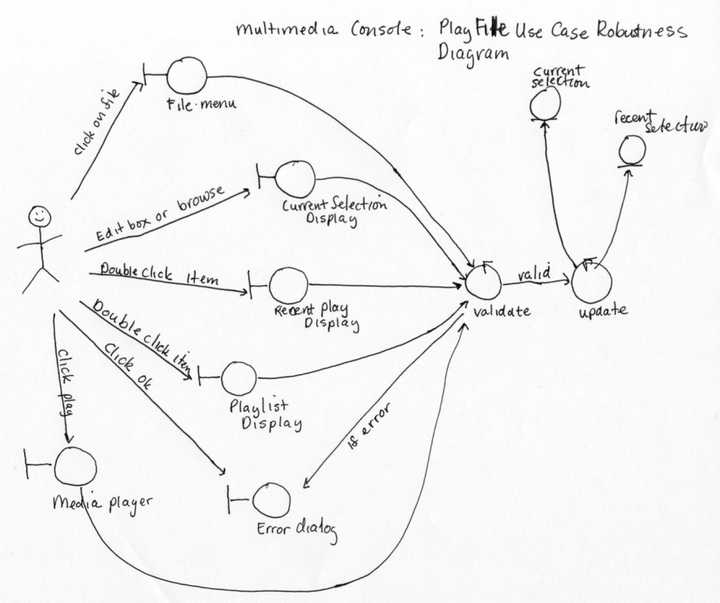 Multimedia Console: Play File Use Case Robustness
Diagram
current
selection
recent
selection
File menu
click on file
Edit box or browse
Current Selection
Display
Double Click item
Recent play
Display
valid
validate
update
Double click item
Click ok
Click play
Playlist
Display
If error
Media player
Error dialog